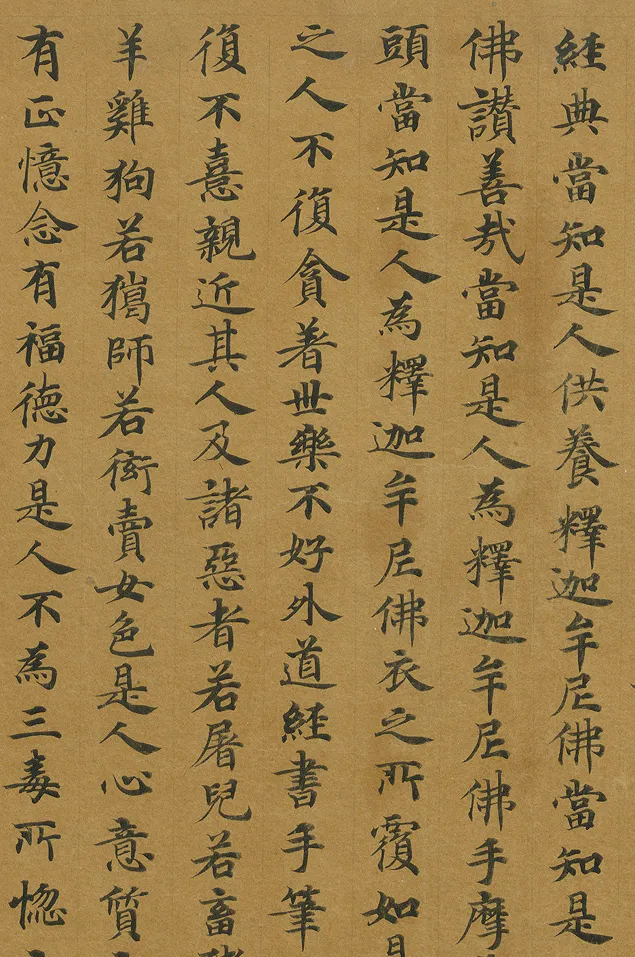 經典當知是人供養釋迦牟尼佛當知是
佛讃善㢤當知是人為釋迦牟尼佛手摩
頭當知是人為釋迦牟尼佛衣之所覆如
之人不復貪著世樂不好外道經書手筆
復不憙親近其人及諸惡者若屠兒若畜
羊雞狗若獦師若衒賣女色是人心意質
有正憶念有福德力是人不為三毒所惚